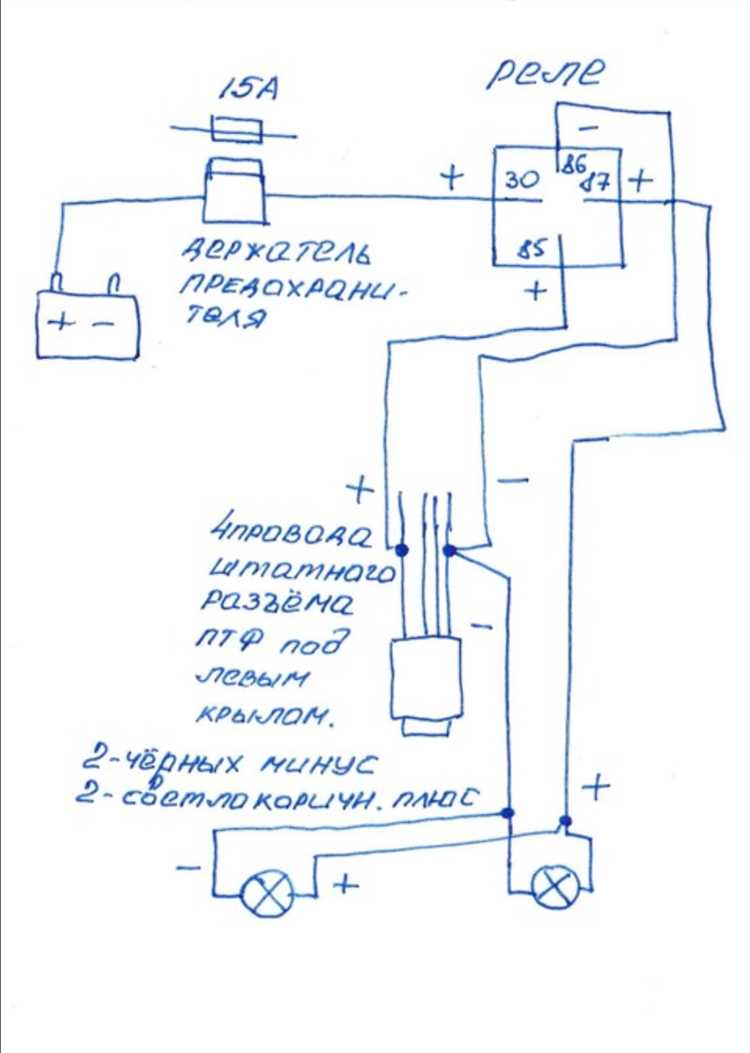 15А
реле
+
-
30
86
87
+
85
+
держатель
предохрани-
теля
+ -
+
-
4провода
штатного
разъёма
ПТФ под
левым
крылом.
-
2-чёрных минус
2-светлокоричн. плюс
+
-
+